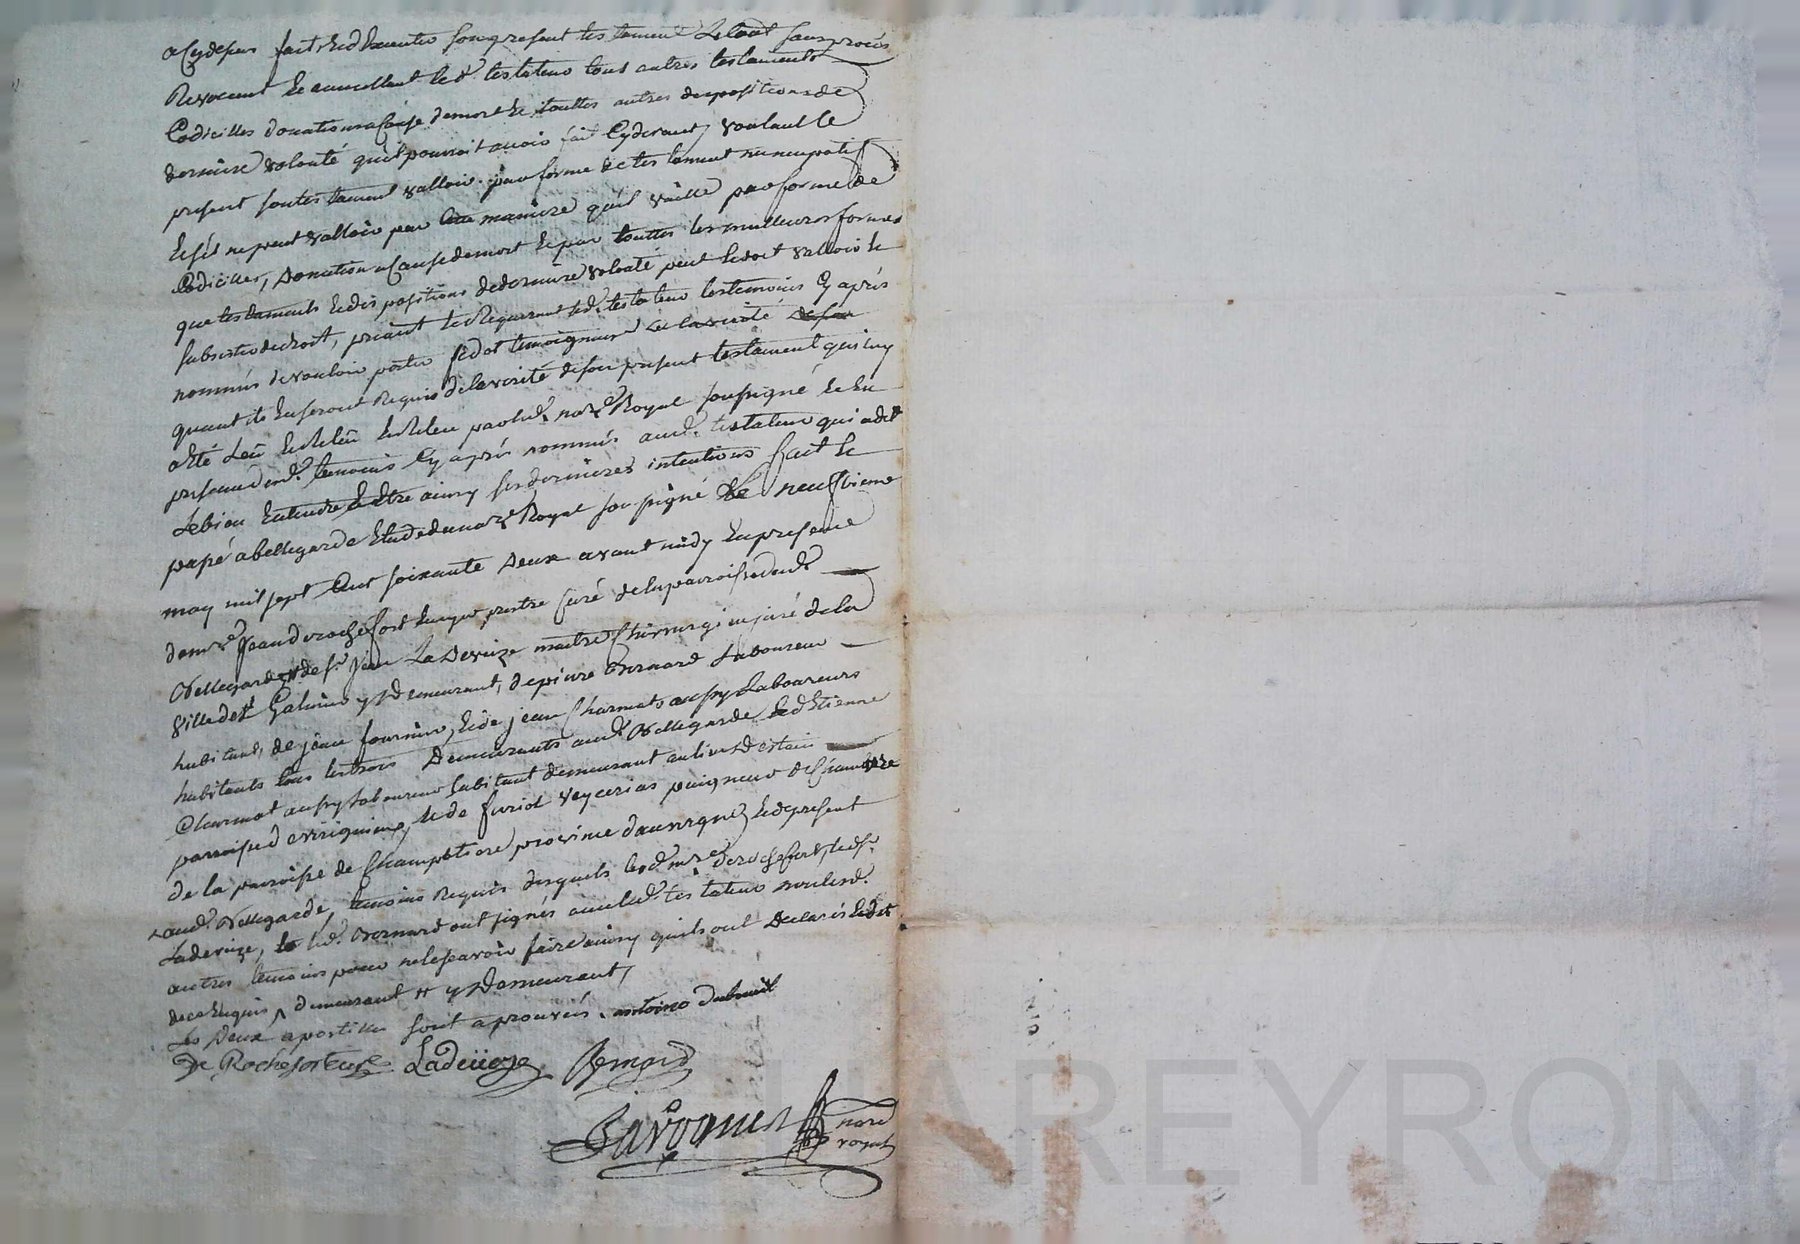 a cydessus fait et d'executer son present testament Le tout sans procés
Revocant et cancellant led. testateur tous autres testaments
Codicilles donations a cause de mort et touttes autres dispositions de
derniere volonté quil pouvoit avoir fait Cydevant, voulant le
present son testament valloir par forme de testament nuncupatif
et sil ne peut valloir par cette maniere quil vaille par forme de
Codicilles, Donation a cause de mort et par touttes les meilleures formes
que testaments et dispositions de derniere volonté peut et doit valloir et
subsister de droit, priant et Requerant led. testateur les temoins Cy aprés
nommés de vouloir porter fidel temoignage de la verité
quant ils en seront Requis de la verité de son present testament qui luy
a eté Leü et Releü par led. nore Royal soussigné et en
presence desd. temoins Cy aprés nommés aud. testateur qui a dit
Le bien entendre et etre ainsy ses dernieres intentions fait et
passé a bellegarde Etude du nore Royal soussigné Le neufvieme
may mil sept cent soixante Deux avant midy En presence
de mre Jean de rochefort ecuyer pretre curé de la parroisse dud.
Bellegarde # de sr Jean Ladeveze maitre Chirurgien juré de la
ville de st Galmier y Demeurant, de pierre Bernard Laboureur
habitant, de jean fournier, et de jean Charmat aussy Laboureurs
habitants tous les trois Demeurants aud. Bellegarde et d'Etienne
Charmat aussy laboureur habitant demeurant au lieu
parroisse et de peigneur de Chanvre
de la parroisse de Champetiere province d'auvergne et de present
aud. Bellegarde, temoins Requis desquels led. mre de rochefort, led. sr
Ladeveze, led. Bernard ont signés avec led. testateur non lesd.
autres temoins pour ne le scavoir faire ainsy quils ont Declarés et de
de ce Enquis, demeurant # y Demeurant,
Les Deux apostilles sont approuvés. antoine dubreüil
De Rochefort Curé Ladeveze Bernard
nore
royal
CHAREYRON